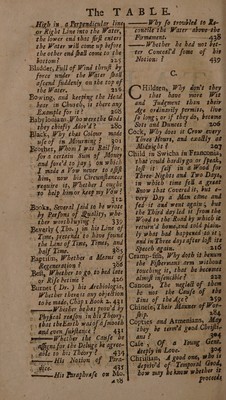 The TABLE.
High in a Perpendicular line
or Right Line into the Water,
the lower end that first enters
the Water will come up before
the other end shall come to the
bottom? 225
Bladder, Full of Wind thrust by
force under the Water shall
ascend suddenly on the top of
the Water. 226
Bowing, and keeping the Head
bare in Church, is there any
Example for it? 268
Babylonians, Who were the Gods
they chiefly Ador'd? 280
Black, Why that Colour made
use of in Mourning? 301
Brother, Whom I was Bail for,
for a certain Sum of Money
and forc'd to pay; on which
I made a Vow never to assist
him, now his Circumstances
require it, Whether I ought
to help him or keep my Vow?
312
Books, Several said to be wrote
by Persons of Quality, whe-
ther worth buying? 339
Beverly (Tho.) in his Line of
Time, pretends to have found
the Line of Time, Times, and
half Time. 385
Baptism, Whether a Means of
Regeneration. 386
Bell, Whether to go to bed late
or Rise betime? 420
Burnet (Dr.) his Archiologia,
Whether there is any objection
to be made, Chap. 1 Book 2. 431
—Whether he has prov'd by
Physical reason in his Theory,
that the Earth was of a smooth
and even substance? 431
—Whether the Cause he
assigns for the Deluge be agree-
able to his Theory? 434
—His Notion of Para-
dice. 435
—His Paraphrase on Mo.
438
—Why so troubled to Re-
concile the Water above the
Firmament. 438
—Whether he had not bet-
ter Conceal'd some of his
Notion? 439
C.
Children, Why don't they
that have more Wit
and Judgment than their
Age ordinarily permits, live
so long, or if they do, become
Sots and Dunces? 200
Cock, Why does it Crow every
Three Hours, and exactly at
Midnight? 207
Child in Swichs in Franconia,
that could hardly go or speak,
lost it self in a Wood for
Three Nights and Two Days,
in which time fell a great
Snow that Cover'd it, but e-
very Day a Man came and
fed it and went again, but
the Third day led it from the
Wood to the Road by which it
return'd home, and told plain-
ly what had happened to it;
and in Three days after lost its
Speech again. 226
Cramp-fish, Why doth it benum
the Fisherman's arm without
touching it, that he becomes
almost insensible?
Canons, The neglect of them
be not the Cause of the
Sins of the Age? 259
Chinese, Their Manner of Wor-
ship. 284
Copties and Armenians, May
they be term'd good Christi-
ans? 294
Case, Of a Young Gent.
deeply in Love.
Christian, A good one, who is
depriv'd of Temporal Goods,
how may he know whether it
proceeds